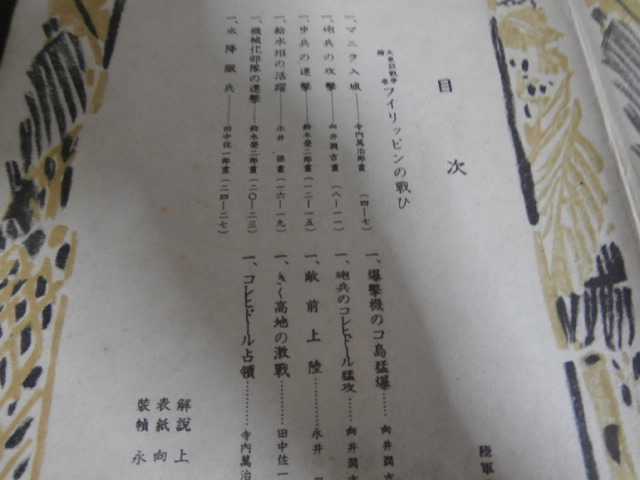 目次
大東亞戰爭繪巻 フイリッピンの戰ひ
一、マニラ入城――寺内萬治郎畫(四―七)
一、砲兵の攻擊――向井潤吉畫(八―一一)
一、步兵の進擊――鈴木榮二郎畫(一二―一五)
一、給水班の活躍――永井保畫(一六―一九)
一、機械化部隊の進擊――鈴木榮二郎畫(二〇―二三)
一、水陣服兵――田中佐一郎畫(二四―二七)
一、爆擊機のコ島猛爆……向井潤吉
一、砲兵のコレヒドール猛攻……向井潤吉
一、敵前上陸……永井
一、きく高地の激戰……田中佐一
一、コレヒドール占領……寺内萬治
陸軍
解說 上
表紙 向
裝幀 永